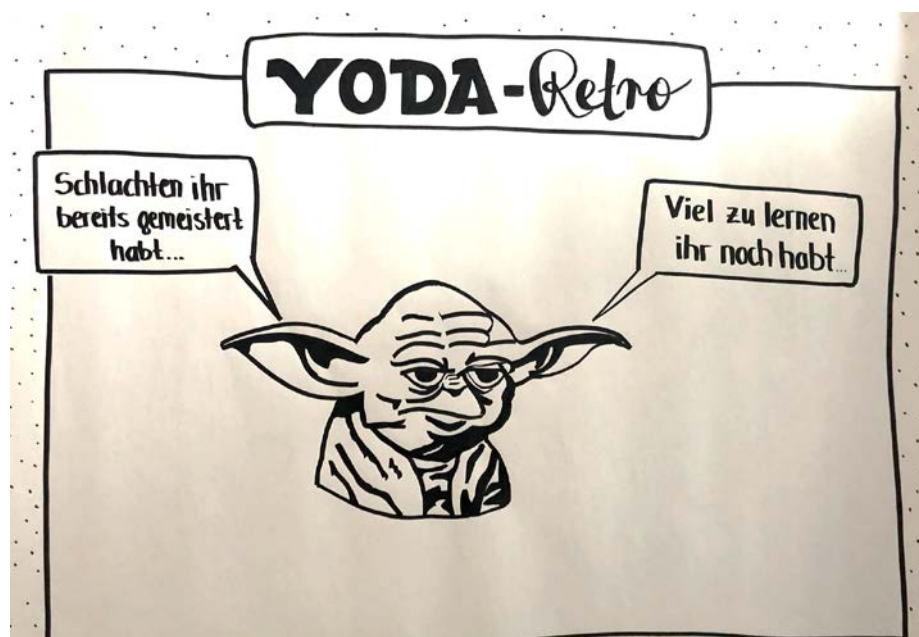 YODA-Retro
Schlachten ihr
bereits gemeistert
habt...
Viel zu lernen
ihr noch habt...